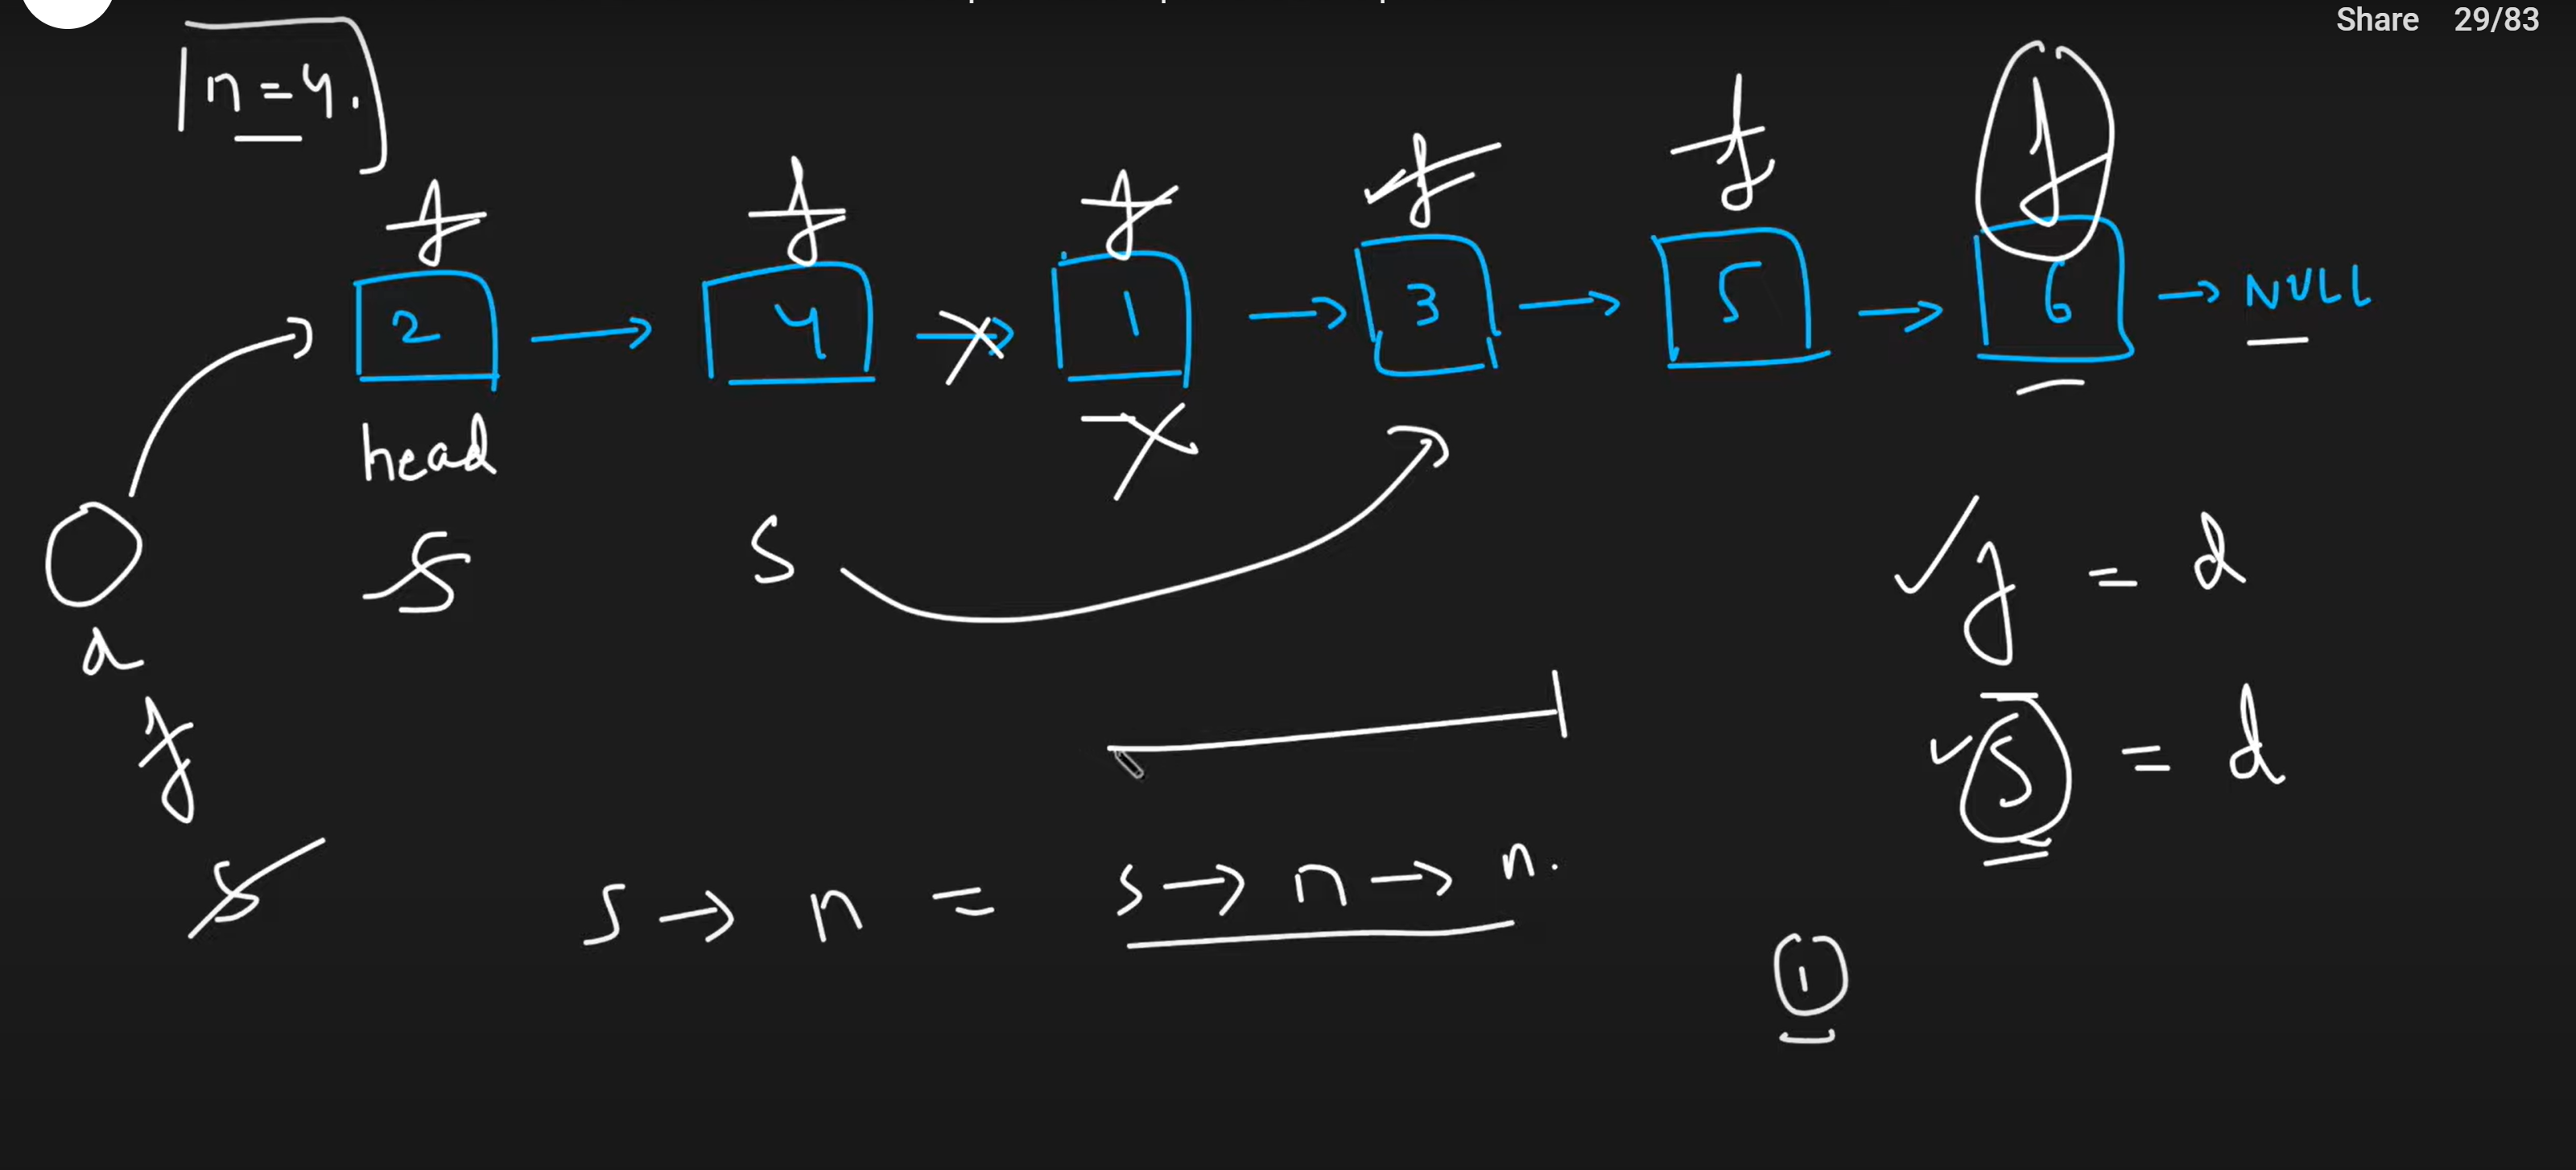 Share 29/83
n=4.
f f f f f f
2 → 4 → 1 → 3 → 5 → 6 → NULL
head
S S
d
f = d
f
S = d
S
S → n = S → n → n.
1